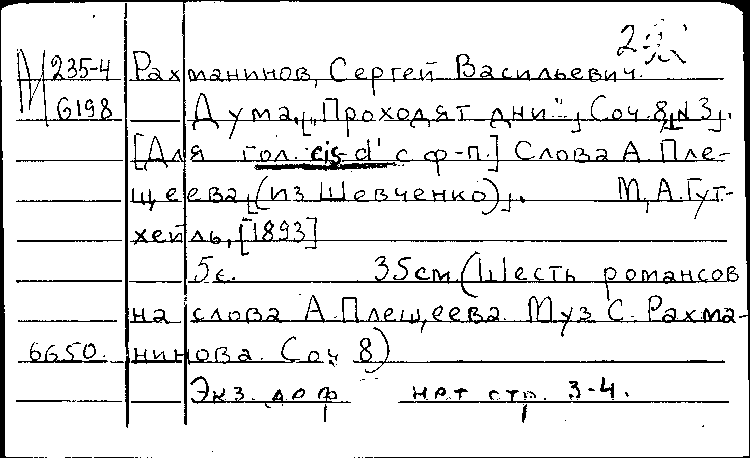 2
М 235-4 Рахманинов, Сергей Васильевич.
G198 Дума, [„Проходят дни"], Соч. 8, №3].
[Для гол. cis-d' с ф-п.] Слова А. Пле-
щеева, [(из Шевченко)]. М, А. Гут-
хейль, [1893]
5с. 35см (Шесть романсов
на слова А. Плещеева. Муз С. Рахма-
6650. нинова. Соч 8)
Экз. деф нет стр. 3-4.